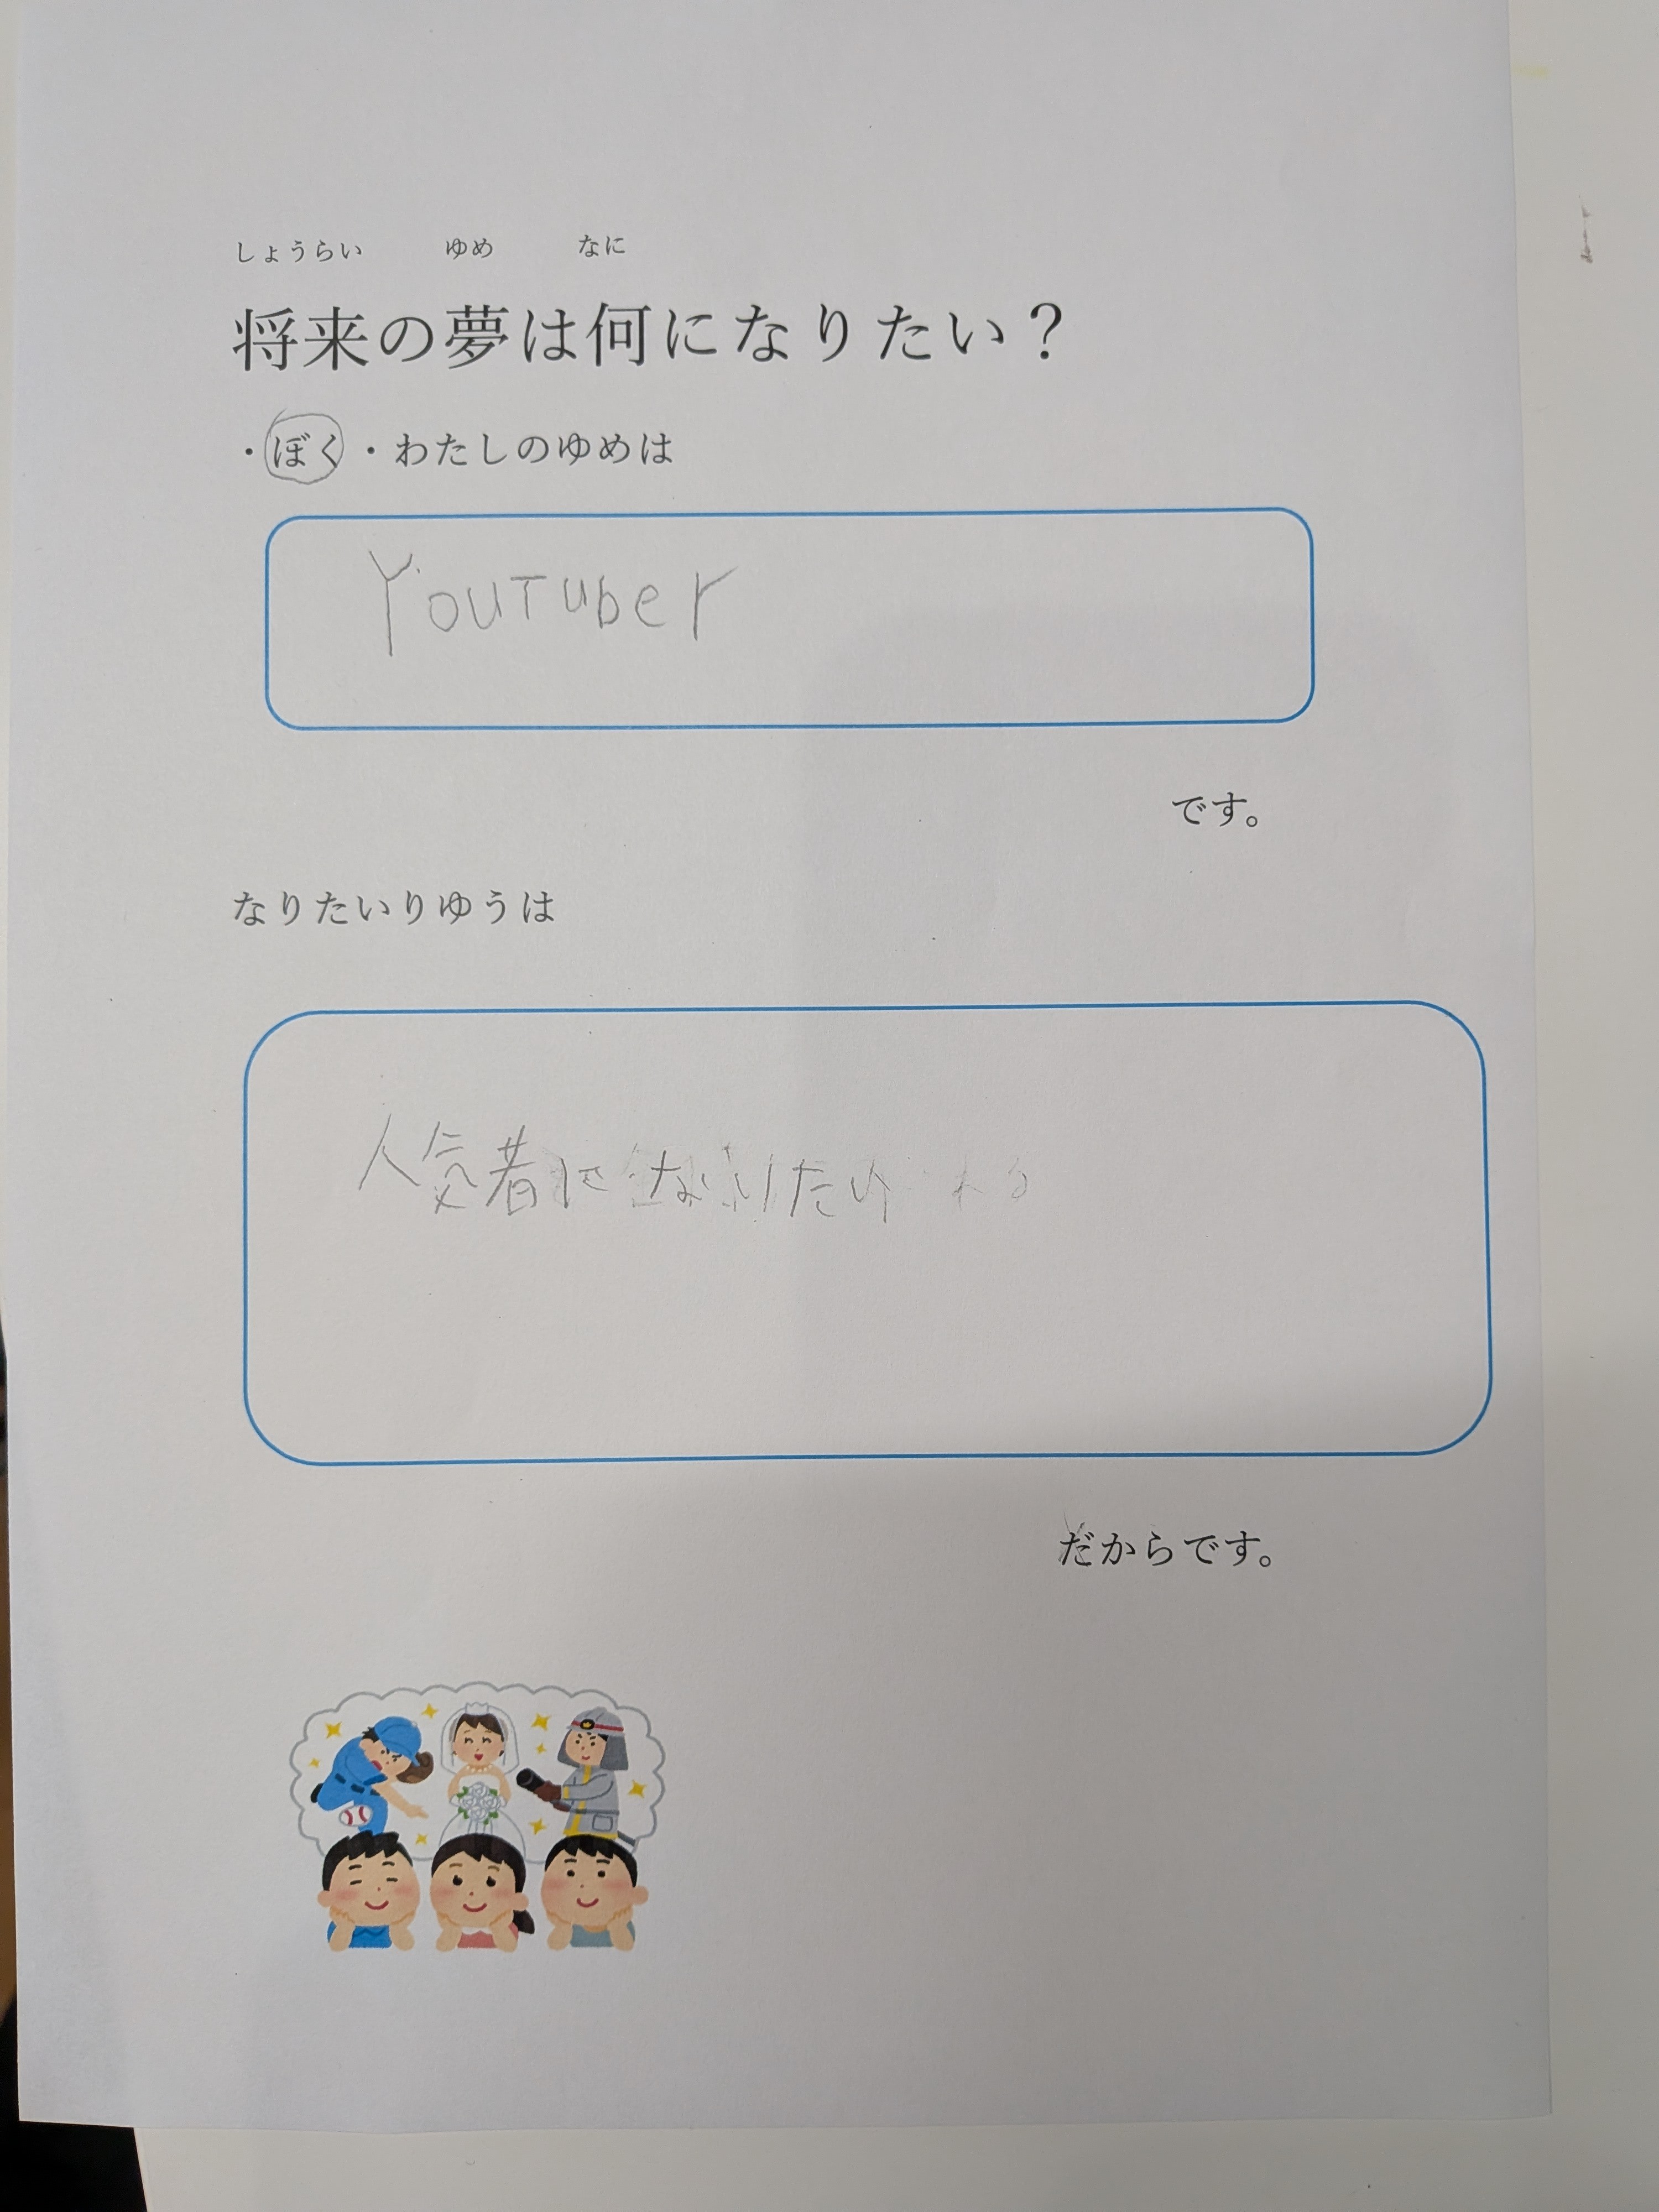 しょうらい ゆめ なに
将来の夢は何になりたい？
・ぼく・わたしのゆめは
YouTuber
です。
なりたいりゆうは
人気者になりたい
だからです。